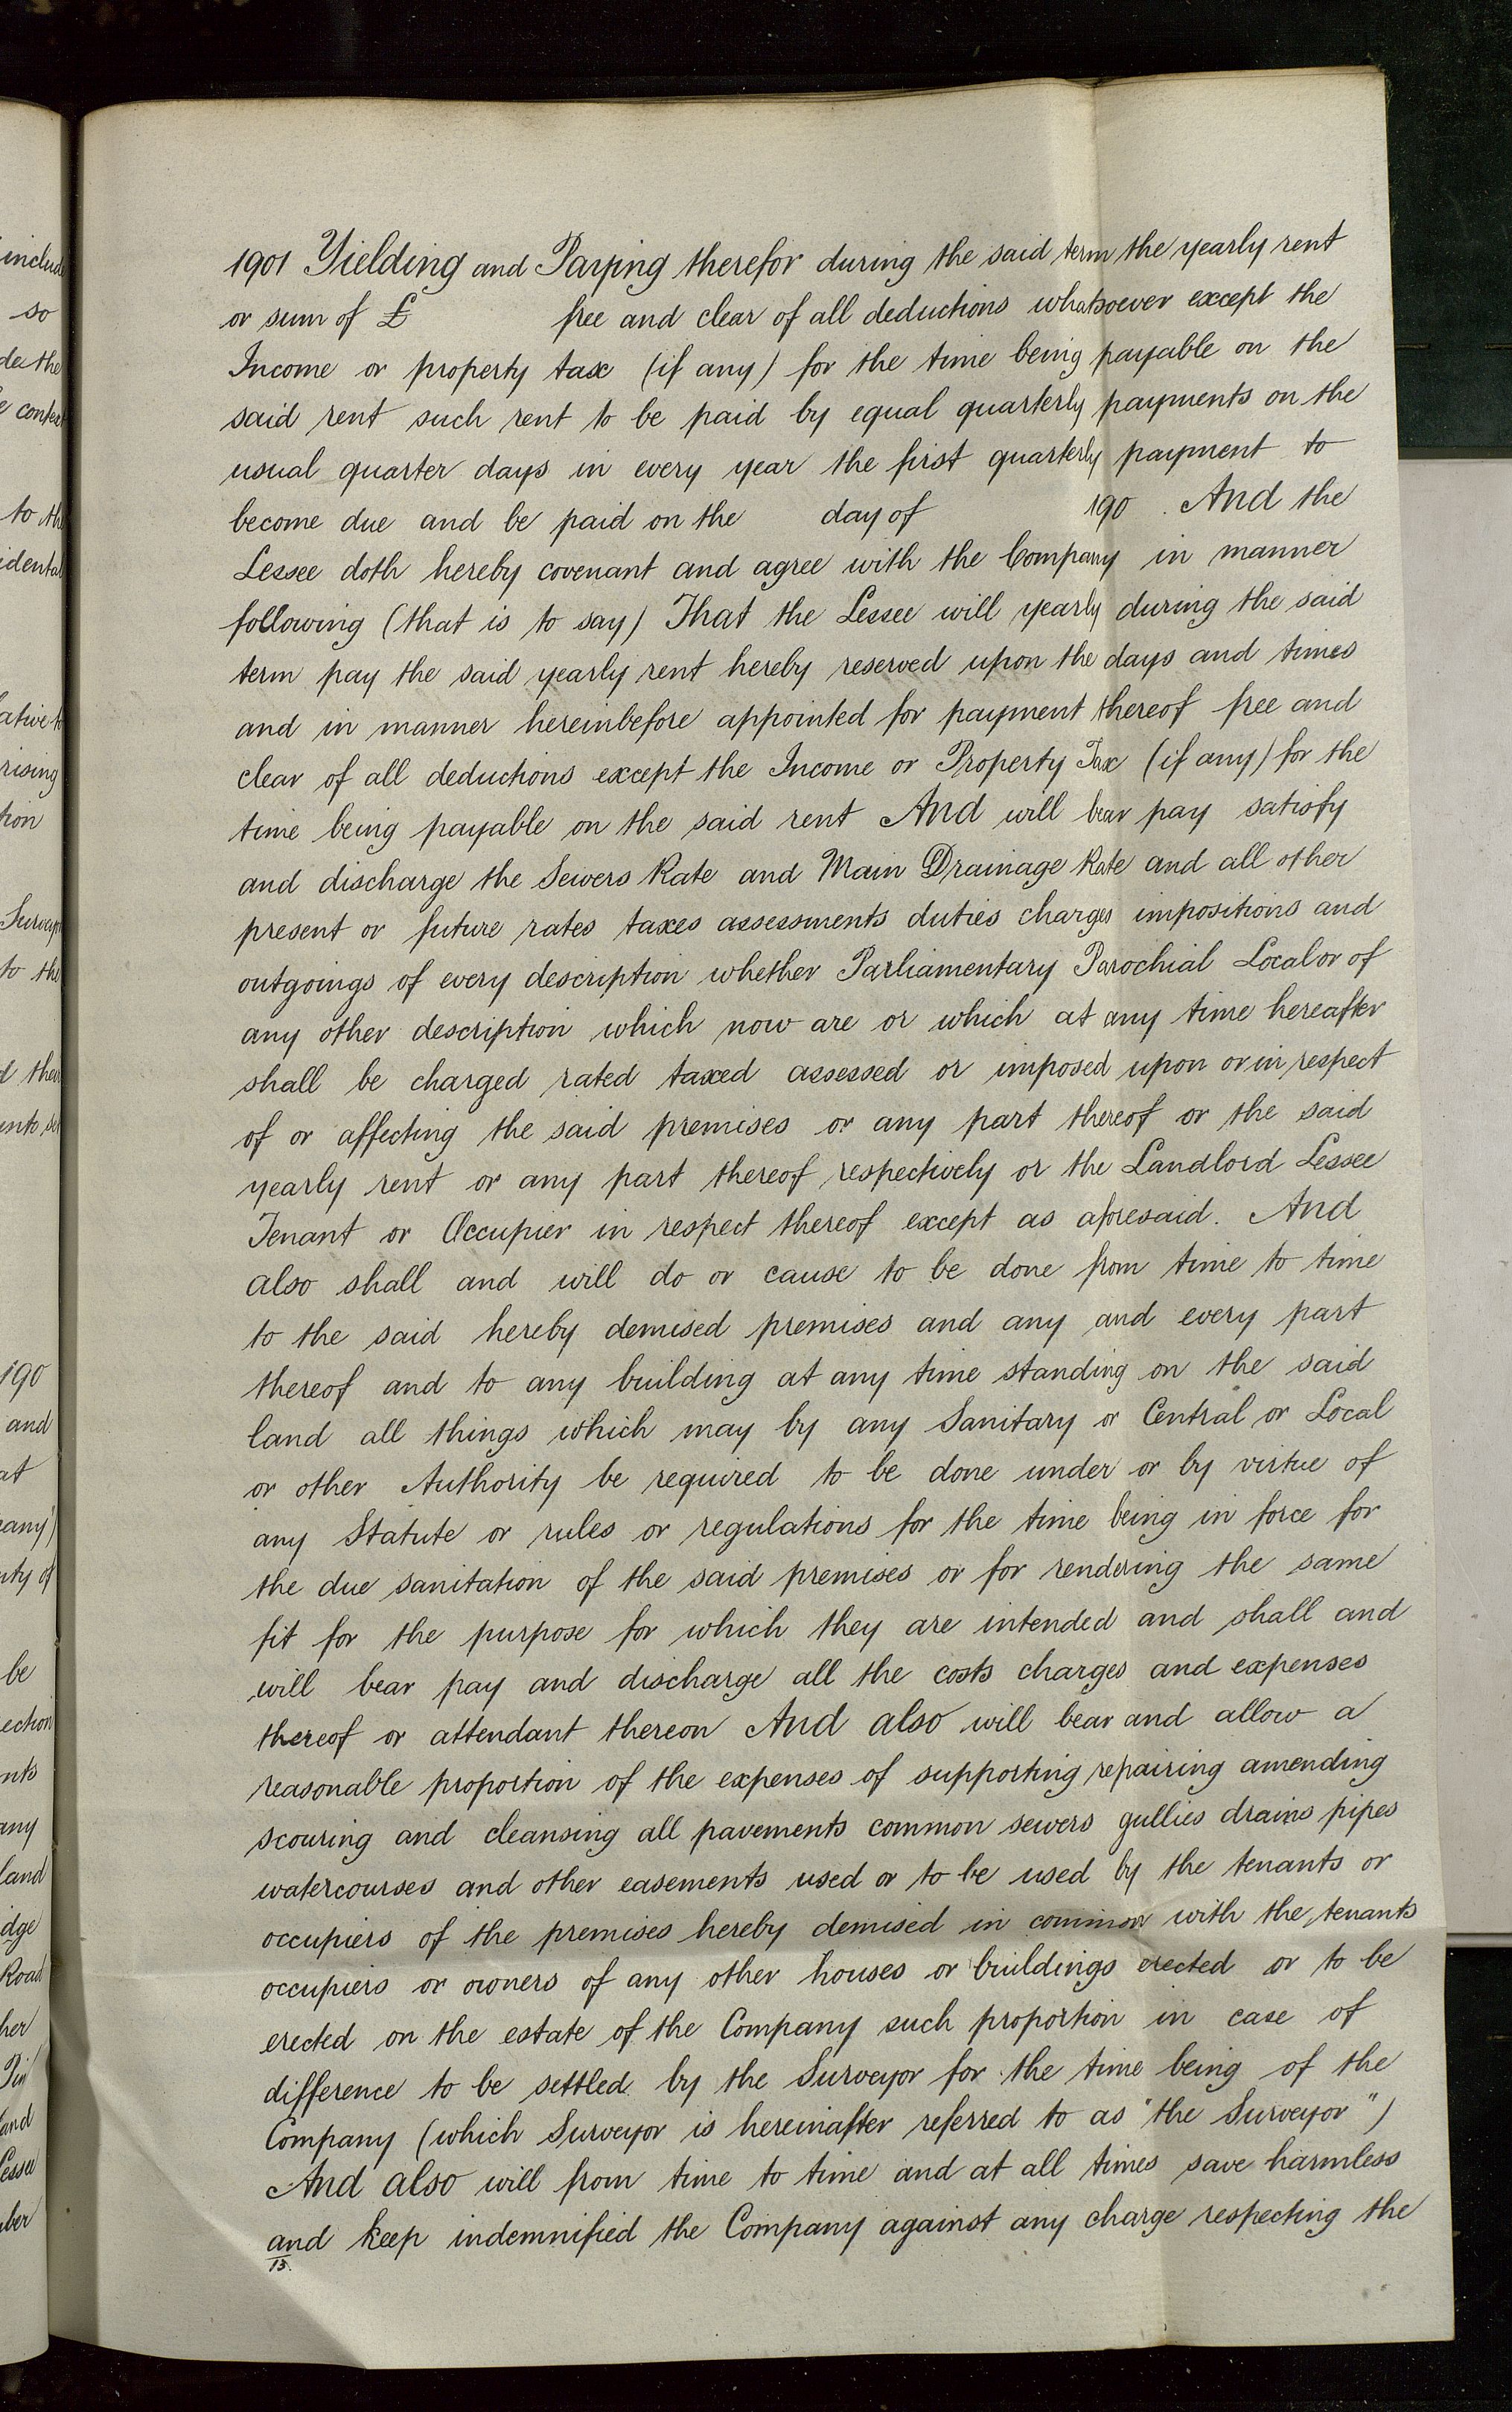 1901 Yielding and Paying therefor during the said term the yearly rent
or sum of £ free and clear of all deductions whatsoever except the
Income or property tax (if any) for the time being payable on the
said rent such rent to be paid by equal quarterly payments on the
usual quarter days in every year the first quarterly payment to
become due and be paid on the day of 190 . And the
Lessee doth hereby covenant and agree with the Company in manner
following (that is to say) That the Lessee will yearly during the said
term pay the said yearly rent hereby reserved upon the days and times
and in manner hereinbefore appointed for payment thereof free and
clear of all deductions except the Income or Property Tax (if any) for the
time being payable on the said rent And will bear pay satisfy
and discharge the Sewers Rate and Main Drainage Rate and all other
present or future rates taxes assessments duties charges impositions and
outgoings of every description whether Parliamentary Parochial Local or of
any other description which now are or which at any time hereafter
shall be charged rated taxed assessed or imposed upon or in respect
of or affecting the said premises or any part thereof or the said
yearly rent or any part thereof respectively or the Landlord Lessee
Tenant or Occupier in respect thereof except as aforesaid. And
also shall and will do or cause to be done from time to time
to the said hereby demised premises and any and every part
thereof and to any building at any time standing on the said
land all things which may by any Sanitary or Central or Local
or other Authority be required to be done under or by virtue of
any Statute or rules or regulations for the time being in force for
the due sanitation of the said premises or for rendering the same
fit for the purpose for which they are intended and shall and
will bear pay and discharge all the costs charges and expenses
thereof or attendant thereon And also will bear and allow a
reasonable proportion of the expenses of supporting repairing amending
scouring and cleansing all pavements common sewers gullies drains pipes
watercourses and other easements used or to be used by the tenants or
occupiers of the premises hereby demised in common with the tenants
occupiers or owners of any other houses or buildings erected or to be
erected on the estate of the Company such proportion in case of
difference to be settled by the Surveyor for the time being of the
Company (which Surveyor is hereinafter referred to as "the Surveyor")
And also will from time to time and at all times save harmless
and keep indemnified the Company against any charge respecting the
13.